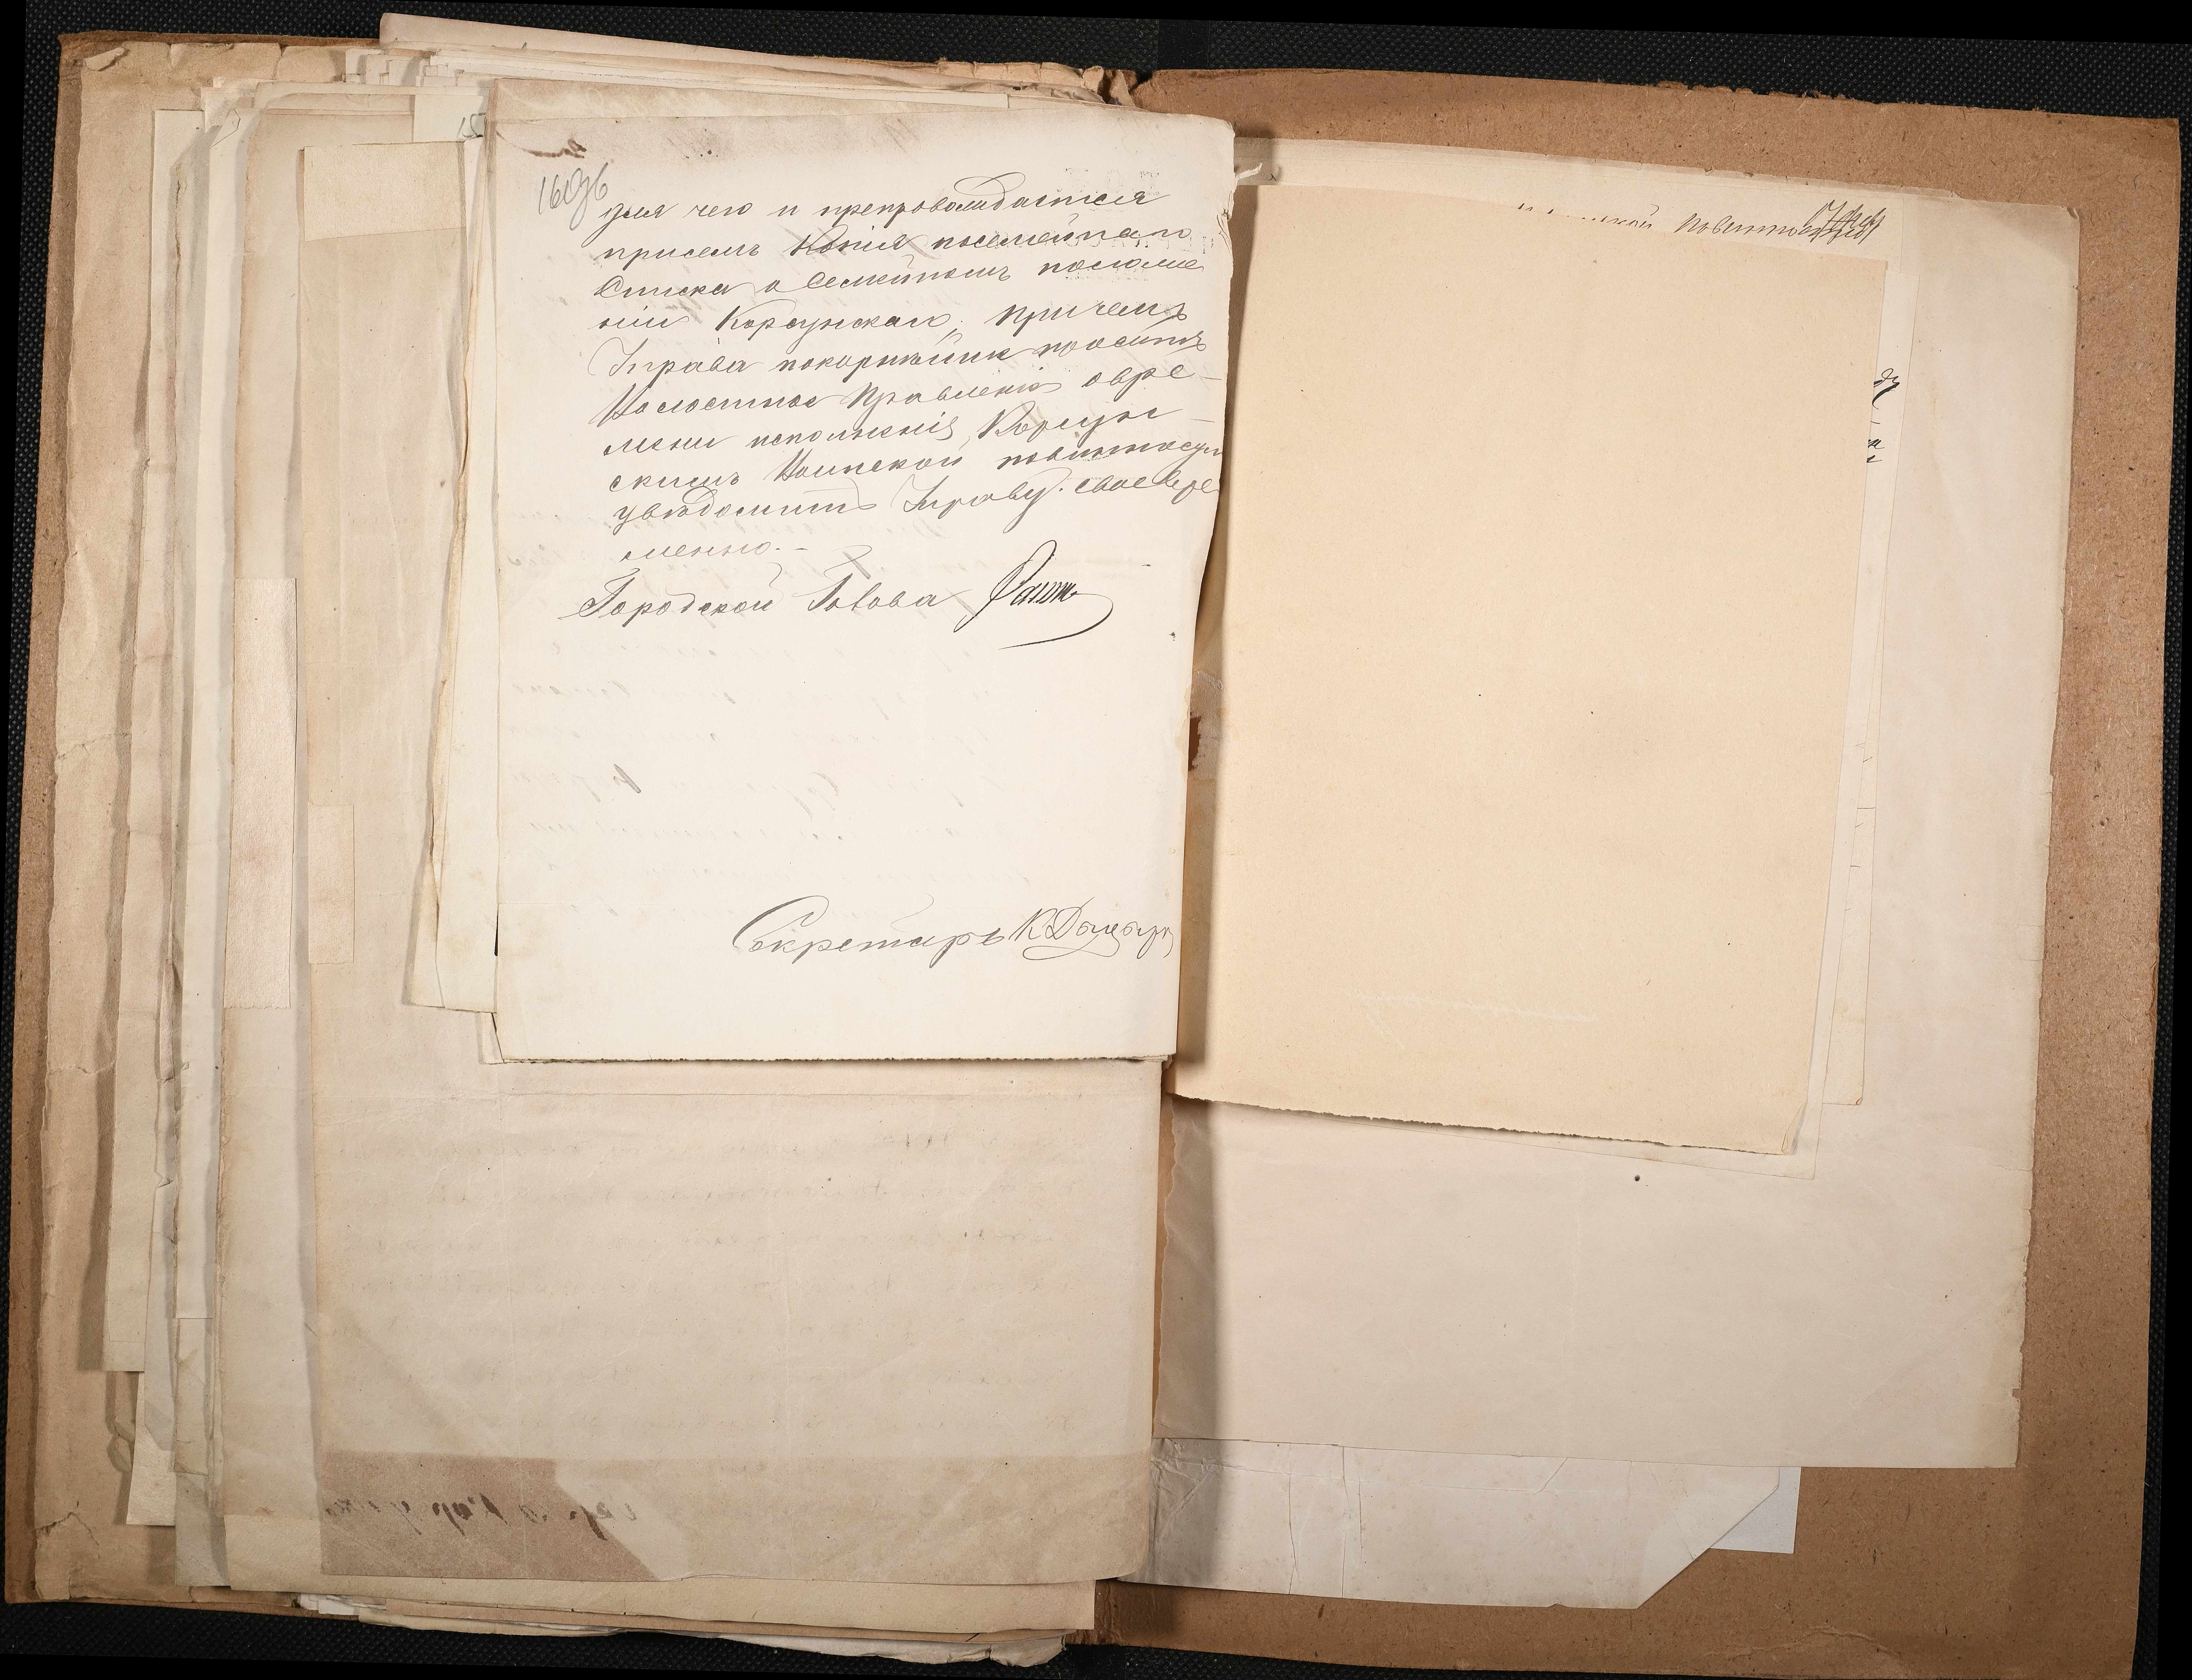 для чего и препровождается
присемъ Копія посемейнаго
Списка о Семейномъ положе
ніи Корсунскаго, причемъ
Управа покорнѣйше проситъ
Волостное Правленіе о вре-
мени исполненія Корсун-
скимъ Воинской повинности
увѣдомить Управу своевре
менно.-
Городской Голова
Секретарь К